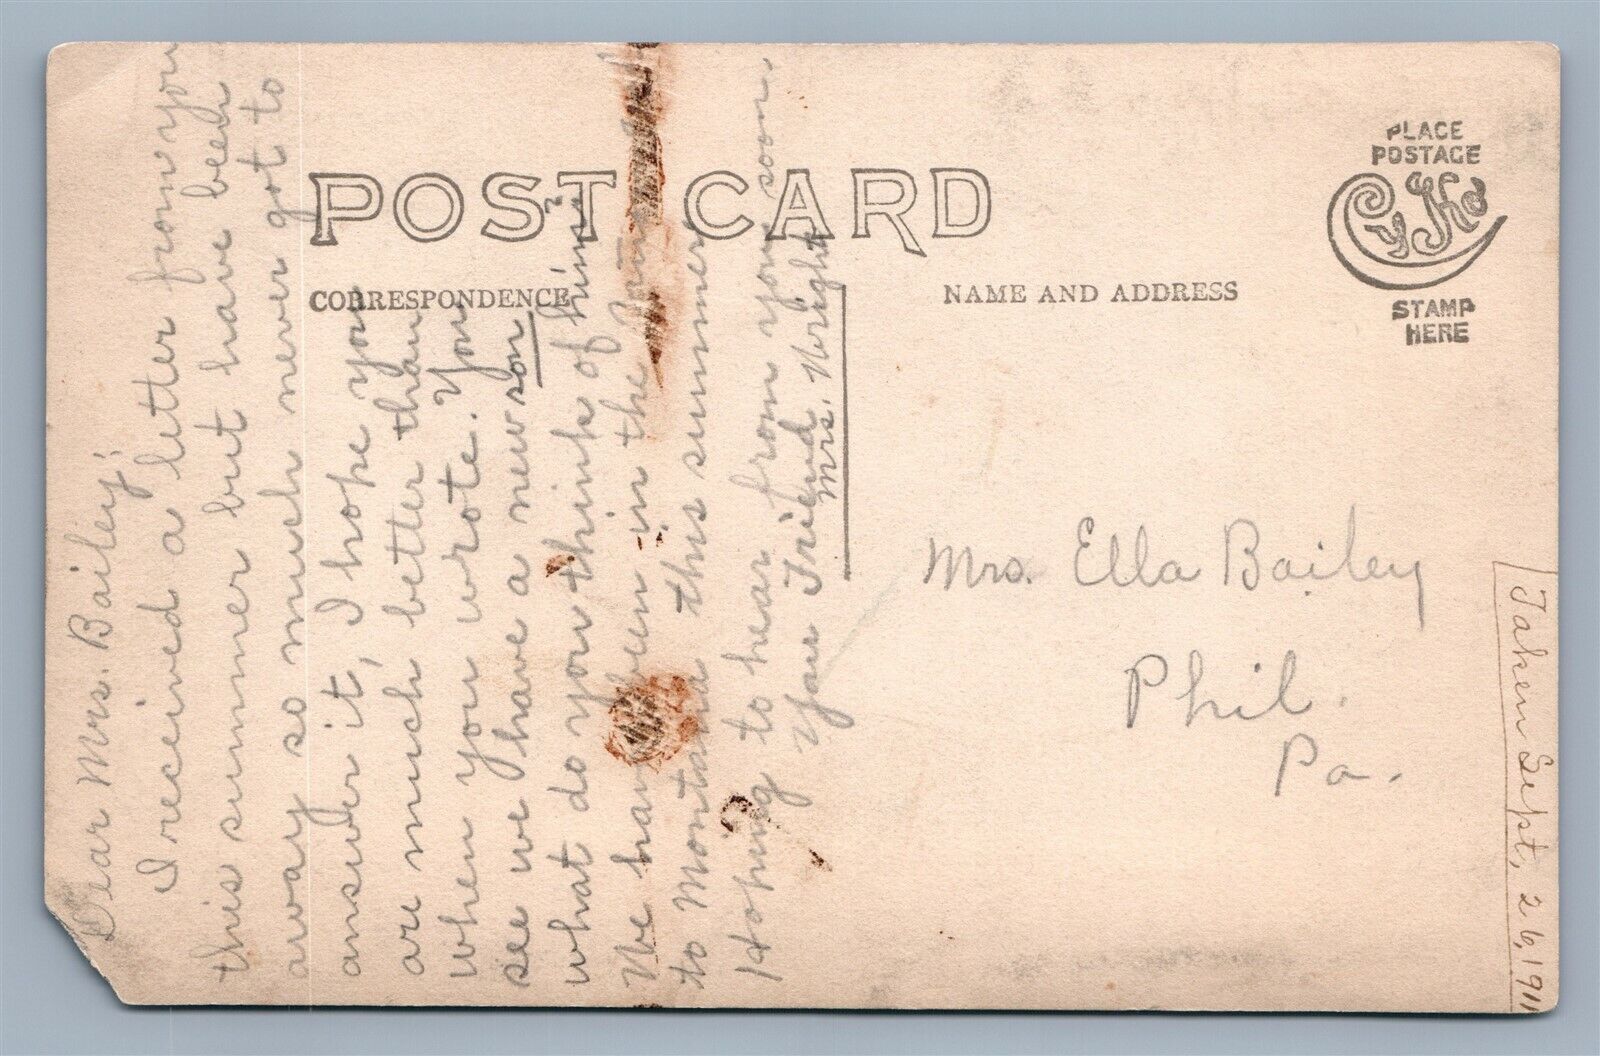 Dear Mrs. Bailey:
I received a letter from you
this summer but have been
away so much never got to
answer it, I hope you
are much better than
when you wrote. You
see we have a new son
what do you think of him?
We have been in the
to Montana this summer
Hoping to hear from you soon.
Your Friend
Mrs. Wright
POST CARD
CORRESPONDENCE
NAME AND ADDRESS
PLACE
POSTAGE
CyKo
STAMP
HERE
Mrs. Ella Bailey
Phil.
Pa.
Taken Sept, 26, 1911